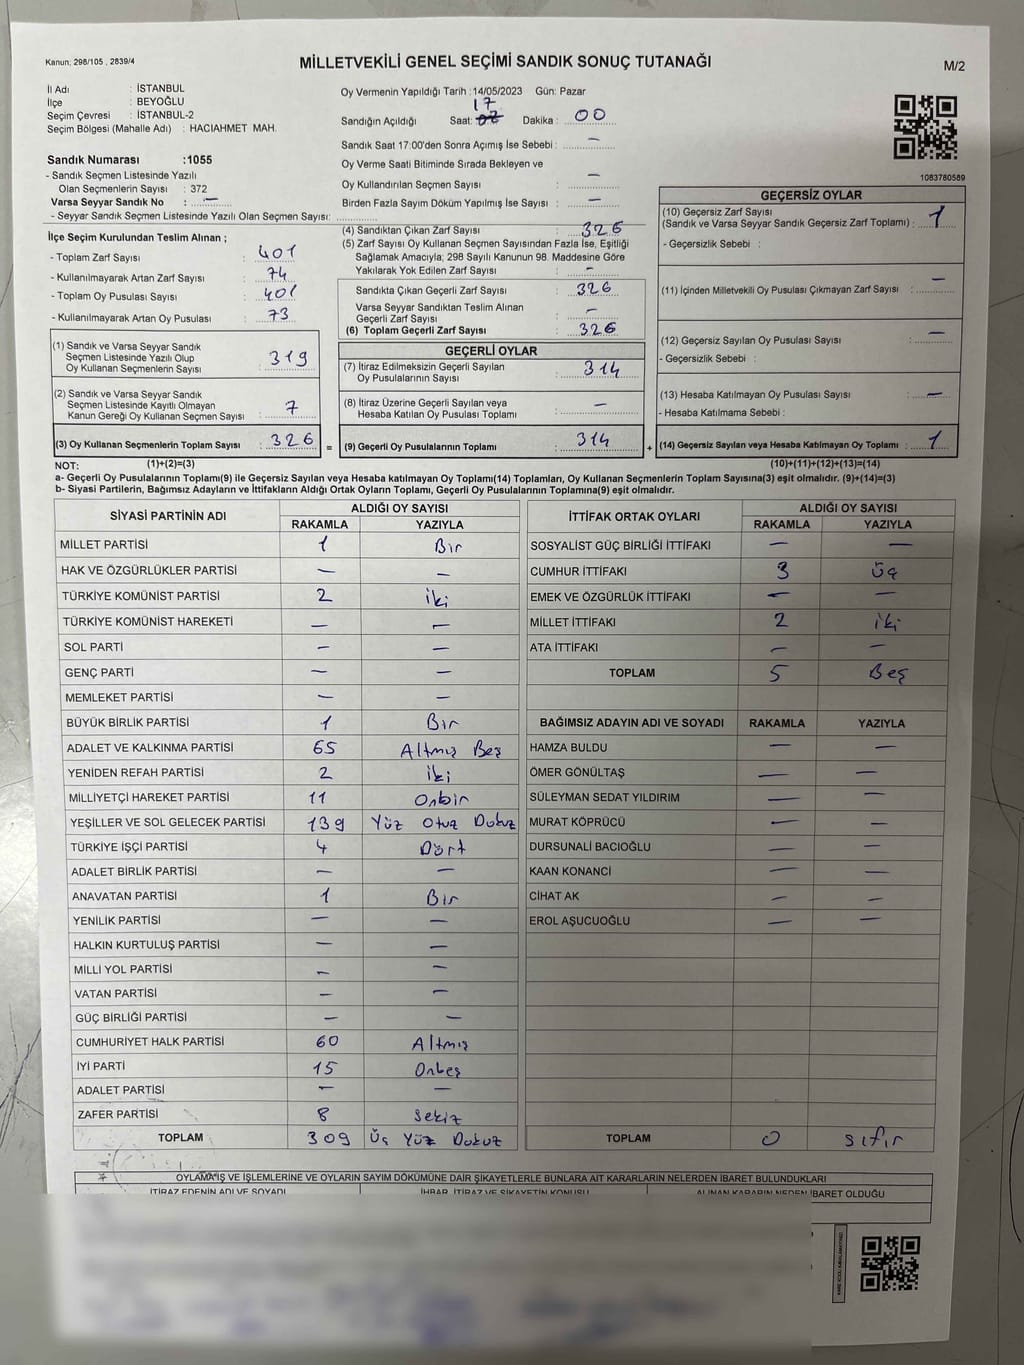 Kanun; 298/105 , 2839/4
MİLLETVEKİLİ GENEL SEÇİMİ SANDIK SONUÇ TUTANAĞI
M/2
İl Adı : İSTANBUL
İlçe : BEYOĞLU
Seçim Çevresi : İSTANBUL-2
Seçim Bölgesi (Mahalle Adı) : HACIAHMET MAH.
Sandık Numarası :1055
- Sandık Seçmen Listesinde Yazılı
Olan Seçmenlerin Sayısı : 372
Varsa Seyyar Sandık No : —
- Seyyar Sandık Seçmen Listesinde Yazılı Olan Seçmen Sayısı:
Oy Vermenin Yapıldığı Tarih :14/05/2023 Gün: Pazar
Sandığın Açıldığı Saat: 17 Dakika : 00
Sandık Saat 17:00'den Sonra Açımış İse Sebebi : —
Oy Verme Saati Bitiminde Sırada Bekleyen ve
Oy Kullandırılan Seçmen Sayısı : —
Birden Fazla Sayım Döküm Yapılmış İse Sayısı : —
1083780589
İlçe Seçim Kurulundan Teslim Alınan ;
- Toplam Zarf Sayısı : 401
- Kullanılmayarak Artan Zarf Sayısı : 74
- Toplam Oy Pusulası Sayısı : 401
- Kullanılmayarak Artan Oy Pusulası : 73
(1) Sandık ve Varsa Seyyar Sandık
Seçmen Listesinde Yazılı Olup
Oy Kullanan Seçmenlerin Sayısı : 319
(2) Sandık ve Varsa Seyyar Sandık
Seçmen Listesinde Kayıtlı Olmayan
Kanun Gereği Oy Kullanan Seçmen Sayısı : 7
(3) Oy Kullanan Seçmenlerin Toplam Sayısı : 326 =
(4) Sandıktan Çıkan Zarf Sayısı : 326
(5) Zarf Sayısı Oy Kullanan Seçmen Sayısından Fazla İse, Eşitliği
Sağlamak Amacıyla; 298 Sayılı Kanunun 98. Maddesine Göre
Yakılarak Yok Edilen Zarf Sayısı : —
Sandıkta Çıkan Geçerli Zarf Sayısı : 326
Varsa Seyyar Sandıktan Teslim Alınan
Geçerli Zarf Sayısı : —
(6) Toplam Geçerli Zarf Sayısı : 326
GEÇERLİ OYLAR
(7) İtiraz Edilmeksizin Geçerli Sayılan
Oy Pusulalarının Sayısı : 314
(8) İtiraz Üzerine Geçerli Sayılan veya
Hesaba Katılan Oy Pusulası Toplamı : —
(9) Geçerli Oy Pusulalarının Toplamı : 314 +
GEÇERSİZ OYLAR
(10) Geçersiz Zarf Sayısı
(Sandık ve Varsa Seyyar Sandık Geçersiz Zarf Toplamı) : 1
- Geçersizlik Sebebi :
(11) İçinden Milletvekili Oy Pusulası Çıkmayan Zarf Sayısı : —
(12) Geçersiz Sayılan Oy Pusulası Sayısı : —
- Geçersizlik Sebebi :
(13) Hesaba Katılmayan Oy Pusulası Sayısı : —
- Hesaba Katılmama Sebebi :
(14) Geçersiz Sayılan veya Hesaba Katılmayan Oy Toplamı : 1
NOT: (1)+(2)=(3) (10)+(11)+(12)+(13)=(14)
a- Geçerli Oy Pusulalarının Toplamı(9) ile Geçersiz Sayılan veya Hesaba katılmayan Oy Toplamı(14) Toplamları, Oy Kullanan Seçmenlerin Toplam Sayısına(3) eşit olmalıdır. (9)+(14)=(3)
b- Siyasi Partilerin, Bağımsız Adayların ve İttifakların Aldığı Ortak Oyların Toplamı, Geçerli Oy Pusulalarının Toplamına(9) eşit olmalıdır.
SİYASİ PARTİNİN ADI ALDIĞI OY SAYISI
RAKAMLA YAZIYLA
MİLLET PARTİSİ 1 Bir
HAK VE ÖZGÜRLÜKLER PARTİSİ — —
TÜRKİYE KOMÜNİST PARTİSİ 2 iki
TÜRKİYE KOMÜNİST HAREKETİ — —
SOL PARTİ — —
GENÇ PARTİ — —
MEMLEKET PARTİSİ — —
BÜYÜK BİRLİK PARTİSİ 1 Bir
ADALET VE KALKINMA PARTİSİ 65 Altmış Beş
YENİDEN REFAH PARTİSİ 2 iki
MİLLİYETÇİ HAREKET PARTİSİ 11 Onbir
YEŞİLLER VE SOL GELECEK PARTİSİ 139 Yüz Otuz Dokuz
TÜRKİYE İŞÇİ PARTİSİ 4 Dört
ADALET BİRLİK PARTİSİ — —
ANAVATAN PARTİSİ 1 Bir
YENİLİK PARTİSİ — —
HALKIN KURTULUŞ PARTİSİ — —
MİLLİ YOL PARTİSİ — —
VATAN PARTİSİ — —
GÜÇ BİRLİĞİ PARTİSİ — —
CUMHURİYET HALK PARTİSİ 60 Altmış
İYİ PARTİ 15 Onbeş
ADALET PARTİSİ — —
ZAFER PARTİSİ 8 Sekiz
TOPLAM 309 Üç Yüz Dokuz
İTTİFAK ORTAK OYLARI ALDIĞI OY SAYISI
RAKAMLA YAZIYLA
SOSYALİST GÜÇ BİRLİĞİ İTTİFAKI — —
CUMHUR İTTİFAKI 3 Üç
EMEK VE ÖZGÜRLÜK İTTİFAKI — —
MİLLET İTTİFAKI 2 iki
ATA İTTİFAKI — —
TOPLAM 5 Beş
BAĞIMSIZ ADAYIN ADI VE SOYADI RAKAMLA YAZIYLA
HAMZA BULDU — —
ÖMER GÖNÜLTAŞ — —
SÜLEYMAN SEDAT YILDIRIM — —
MURAT KÖPRÜCÜ — —
DURSUNALİ BACIOĞLU — —
KAAN KONANCİ — —
CİHAT AK — —
EROL AŞUCUOĞLU — —
TOPLAM 0 sıfır
OYLAMA İŞ VE İŞLEMLERİNE VE OYLARIN SAYIM DÖKÜMÜNE DAİR ŞİKAYETLERLE BUNLARA AİT KARARLARIN NELERDEN İBARET BULUNDUKLARI
İTİRAZ EDENİN ADI VE SOYADI İHBAR, İTİRAZ VE ŞİKAYETİN KONUSU ALINAN KARARIN NEDEN İBARET OLDUĞU